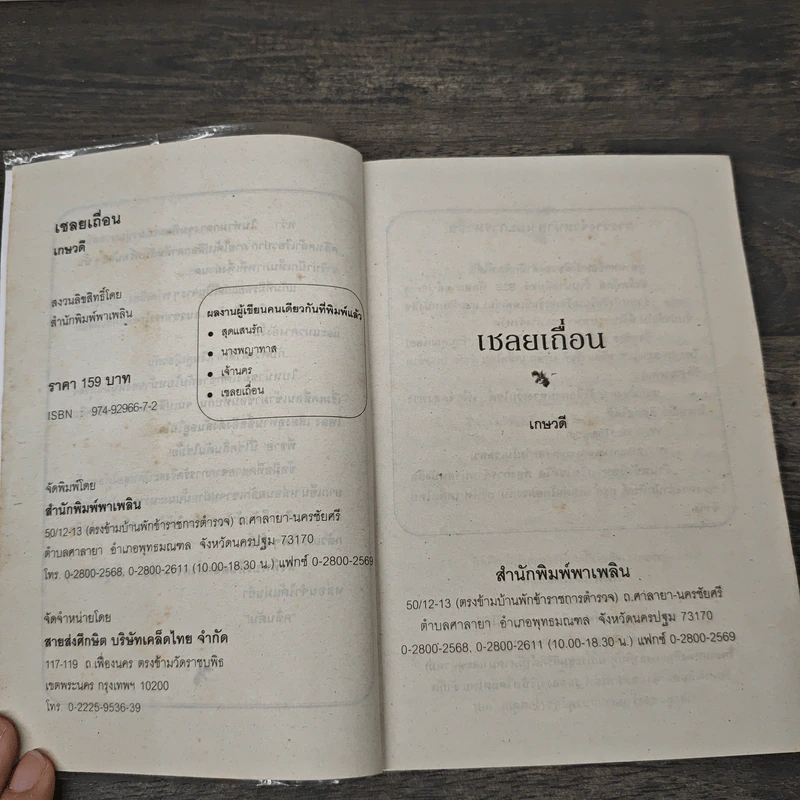 เชลยเถื่อน
เกษวดี
สงวนลิขสิทธิ์โดย
สำนักพิมพ์พาเพลิน
ราคา 159 บาท
ISBN : 974-92966-7-2
ผลงานผู้เขียนคนเดียวกันที่พิมพ์แล้ว
• สุดแสนรัก
• นางพญาทาส
• เจ้านคร
• เชลยเถื่อน
จัดพิมพ์โดย
สำนักพิมพ์พาเพลิน
50/12-13 (ตรงข้ามบ้านพักข้าราชการตำรวจ) ถ.ศาลายา-นครชัยศรี
ตำบลศาลายา อำเภอพุทธมณฑล จังหวัดนครปฐม 73170
โทร. 0-2800-2568, 0-2800-2611 (10.00-18.30 น.) แฟกซ์ 0-2800-2569
จัดจำหน่ายโดย
สายส่งศึกษิต บริษัทเคล็ดไทย จำกัด
117-119 ถ.เฟื่องนคร ตรงข้ามวัดราชบพิธ
เขตพระนคร กรุงเทพฯ 10200
โทร. 0-2225-9536-39
เชลยเถื่อน
เกษวดี
สำนักพิมพ์พาเพลิน
50/12-13 (ตรงข้ามบ้านพักข้าราชการตำรวจ) ถ.ศาลายา-นครชัยศรี
ตำบลศาลายา อำเภอพุทธมณฑล จังหวัดนครปฐม 73170
0-2800-2568, 0-2800-2611 (10.00-18.30 น.) แฟกซ์ 0-2800-2569